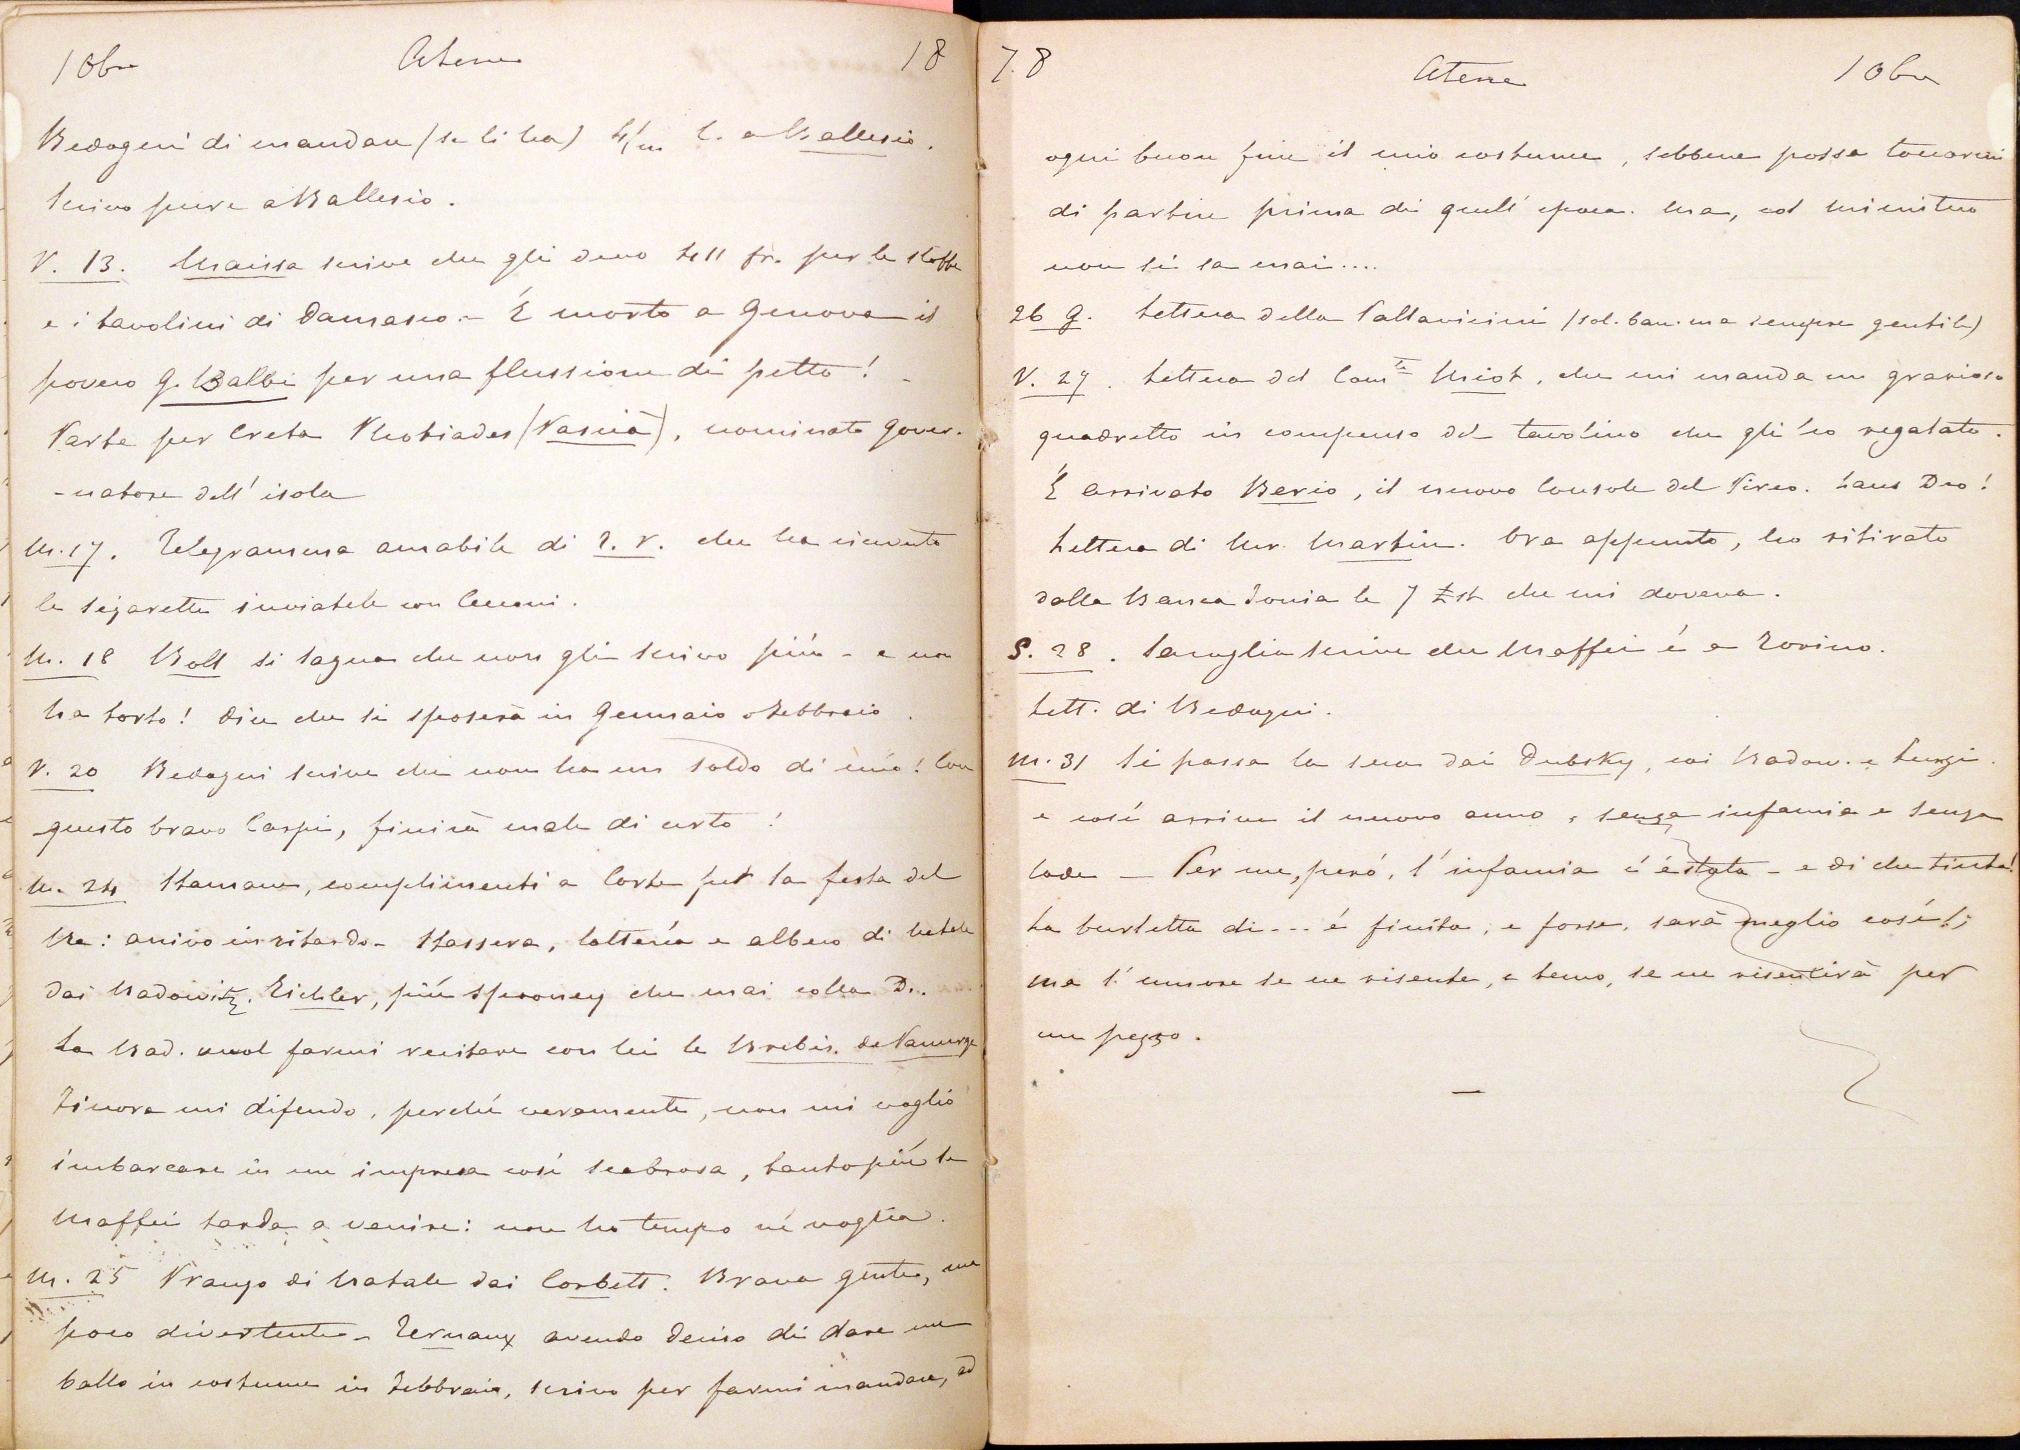 10bre Atene 18
Bedogni di mandare (se li ha) 4/m l. a Ballesio.
Scrivo pure a Ballesio.
V. 13. Maissa scrive che gli devo 411 fr. per le stoffe
e i tavolini di Damasco - É morto a Genova il
povero G. Balbi per una flussione di petto! -
Parte per Creta Photiades (Pascià), nominato gover-
-natore dell' isola
M. 17. Telegramma amabile di che ha ricevuto
le sigarette inviatele con
M. 18 Boll si lagna che non gli scrivo più - e non
ha torto! Dice che si sposerà in Gennaio o Febbraio.
V. 20 Bedogni scrive che non ha un soldo di mio! Con
questo bravo Caspi, finirà male di certo!
M. 24 Stamane, complimenti a Corte per la festa del
Re: arrivo in ritardo - Stassera, lotteria e albero di Natale
dai Radowitz. Eichler, più spooney che mai colla D..
La Rad. vuol farmi recitare con lei le Brebis de Panurge
Finora mi difendo, perché veramente, non mi voglio
imbarcare in un' impresa così scabrosa, tanto più se
Maffei tarda a venire: non ho tempo né voglia.
M. 25 Pranzo di Natale dai Corbett. Brava gente, ma
poco divertente - Ternaux avendo deciso di dare un
ballo in costume in Febbraio, scrivo per farmi mandare, ad
78 Atene 10bre
ogni buon fine il mio costume, sebbene possa toccarmi
di partire prima di quell' epoca. Ma, col ministro
non si sa mai....
26 G. Lettera della Pallavicini (sol. ban. ma sempre gentile)
V. 27. Lettera del Com.te Miot, che mi manda un grazioso
quadretto in compenso del tavolino che gli ho regalato.
É arrivato Berio, il nuovo Console del Pireo. Laus Deo!
Lettera di Mr. Martin. Ora appunto, ho ritirato
dalla Banca Ionia le 7 £st che mi doveva.
S. 28. scrive che Maffei é a Torino.
Lett. di Bedogni.
M. 31 Si passa la sera dai Dubsky, coi Radow. e
e così arriva il nuovo anno, senza infamia e senza
lode - Per me, peró, l'infamia c'é stata - e di che tinta!
La burletta di... é finita, e forse, sarà meglio così;
ma l'umore se ne risente, e temo, se ne risentirà per
un pezzo.
—